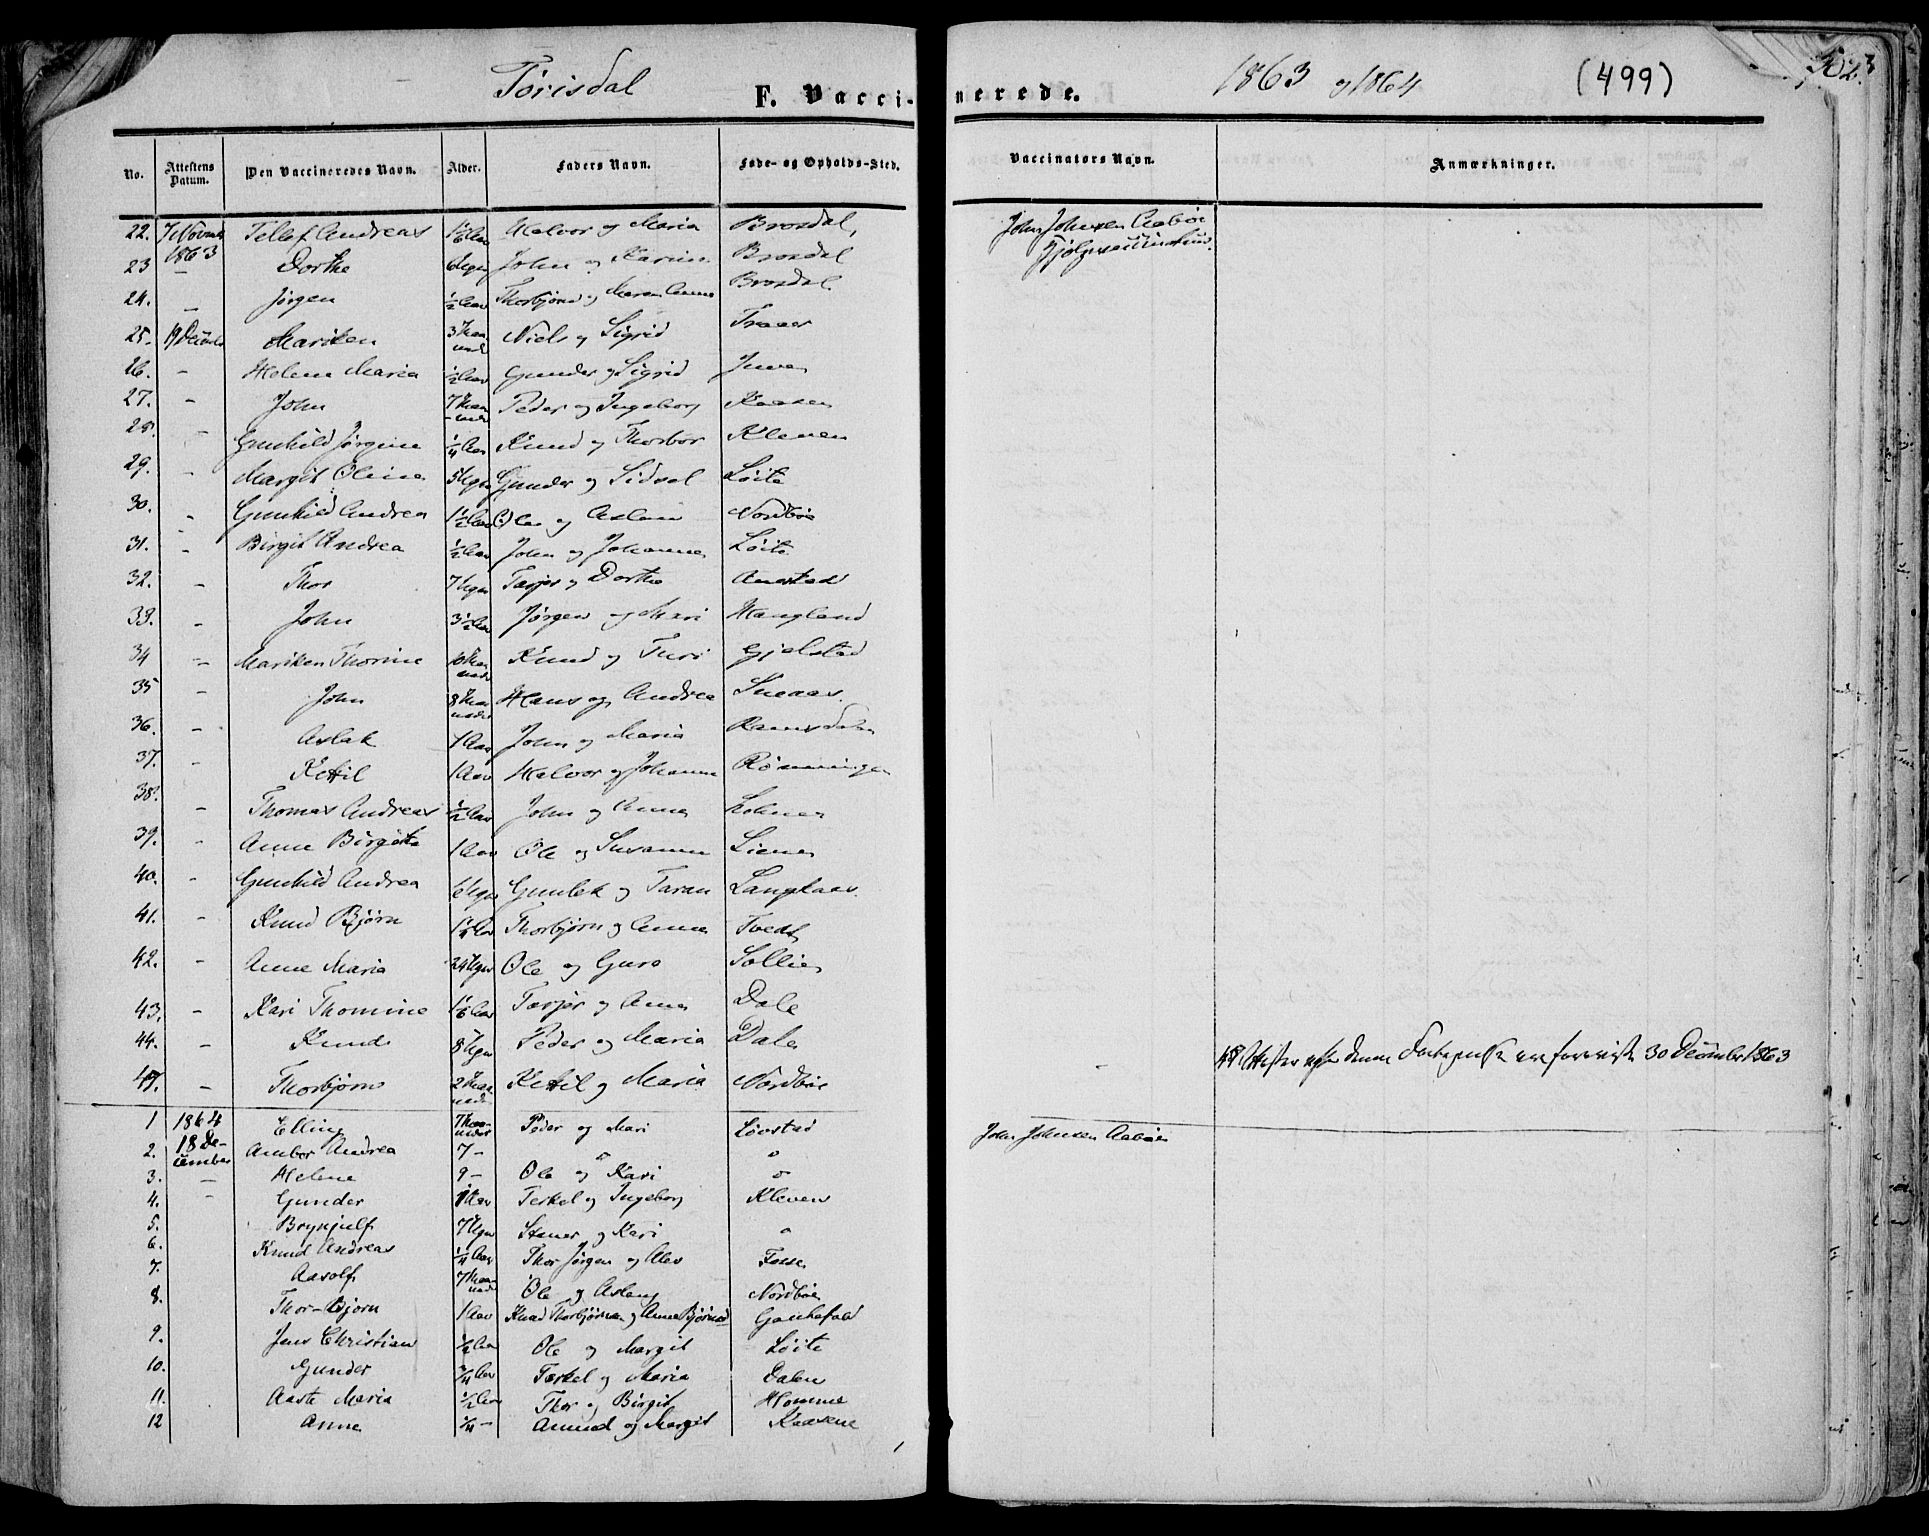 Tørisdal
F. Vaccinerede.
1863 og 1864
(499)
No. Attestens Datum. Den Vaccineredes Navn. Alder. Faders Navn. Føde- og Opholds-Sted. Vaccinators Navn. Anmærkninger.
22. 7 Novembr 1863 Tellef Andreas Halvor og Maria Brosdal, John Johnsen Aabøe
23 — Dorthe 6 Uger John og Karine Brosdal
24. — Jørgen ½ Aar Thorbjørn og Maren Anne Brosdal
25. 19 Decmbr Mariken 3 Maaneder Niels og Sigrid Traaer
26. — Helene Maria ½ Aar Gunder og Sigrid
27. — John 7 Maaneder Peder og Ingeborg Kaasen
28. — Gunhild Jørgine ¼ Aar Knud og Thorbor Kleven
29. — Margit Oline 5 Uger Gunder og Sidsel Løite
30. — Gunhild Andrea 1½ Aar Ole og Aslau Nordbøe
31. — Birgit Andrea ½ Aar John og Johanne Løite
32. — Thor 7 Uger Tarjer og Dorthe
33. — John 3½ Aar Jørgen og Mari Haugland
34 — Mariken Thorine 10 Maaneder Knud og Turi Gjelstad
35 — John 8 Maaneder Hans og Andrea Sneaas
36. — Aslak 1 Aar John og Maria Ramsdalen
37. — Ketil 1 Aar Halvor og Johanne Rønningen
38. — Thomas Andreas ½ Aar John og Anne
39. — Anne Birgitte 1 Aar Ole og Susanne Lien
40. — Gunhild Andrea 6 Uger Gunlek og Taran Langkaas
41. — Knud Bjørn 1¼ Aar Thorbjørn og Anne Tvedt
42. — Anne Maria 24 Uger Ole og Guro Sollie
43. — Kari Thomine Tarjer og Anne Dale
44. — Knud 8 Uger Peder og Maria Dale
45. — Thorbjørn 2 Maaneder Ketil og Maria Nordbøe
30 December 1863
1 1864 18 December Elline 7 Maaneder Peder og Mari Løvstad John Johnsen Aabøe
2. Andrea 7 — " "
3. — Helene 9 — Ole og Kari "
4. — Gunder 1 Aar Terkel og Ingeborg Kleven
5. Brynjulf 7 Uger Stener og Kari "
6. Knud Andreas ¼ Aar Thor Jørgen og Alev Fosse
7. Aasolf 7 Maaneder Ole og Aslaug Nordbøe
8. Thor-Bjørn 1 Aar Knud Thorbjørnsen og Anne Bjørnsd
9. Jens Christian ½ Aar Ole og Margit Løite
10. Gunder ¾ Aar Terkel og Maria Dalen
11. Aaste Maria ½ Aar Thor og Birgit Homme
12 Anne ¼ — Amund og Margit Kaasene